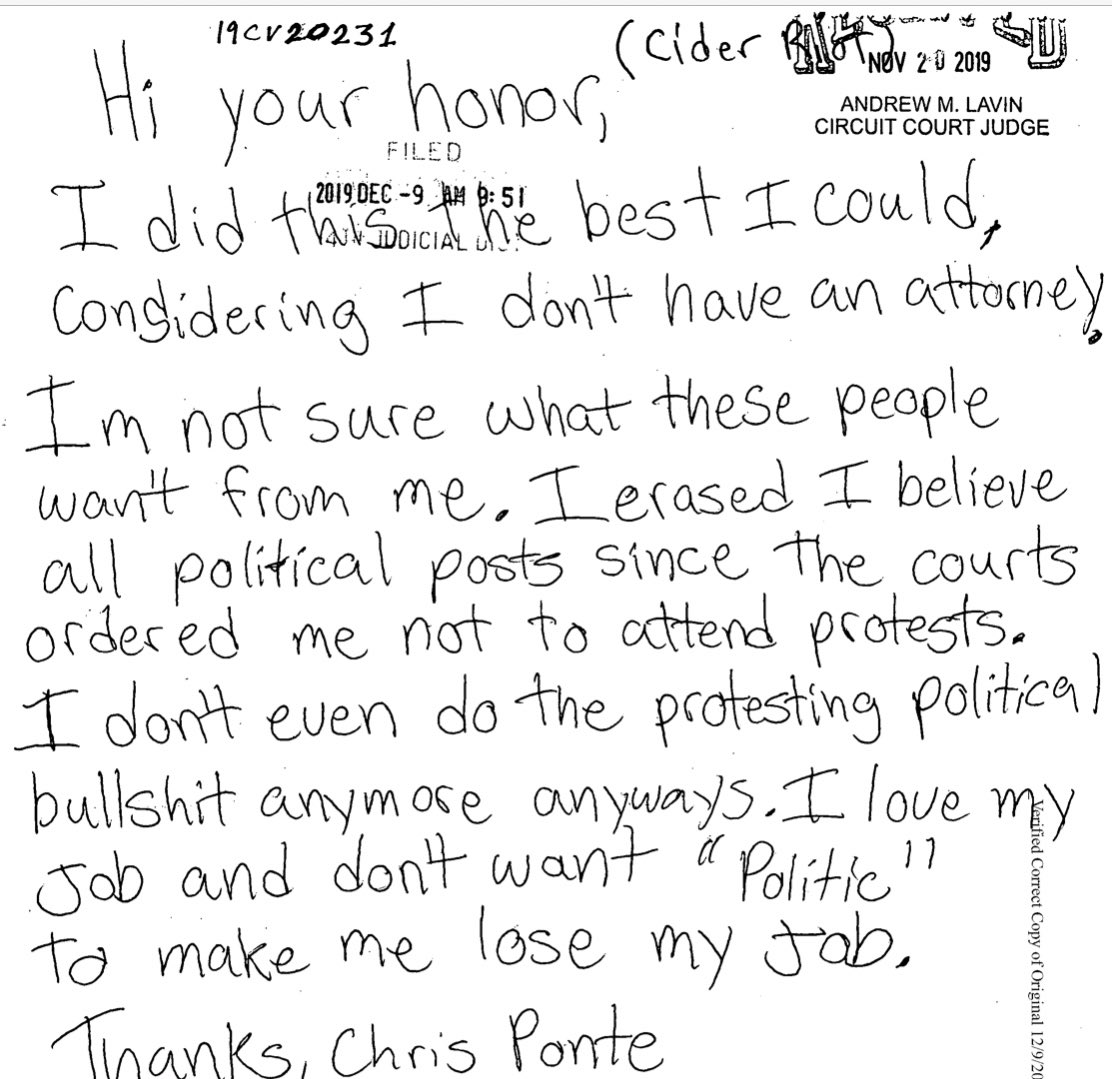 19CV20231
(Cider Riot)
NOV 20 2019
ANDREW M. LAVIN
CIRCUIT COURT JUDGE
Hi your honor,
FILED
2019 DEC -9 AM 9:51
JUDICIAL
I did this the best I could,
Considering I don't have an attorney.
Im not sure what these people
wan't from me. I erased I believe
all political posts since the courts
ordered me not to attend protests.
I don't even do the protesting political
bullshit anymore anyways. I love my
Job and don't want "Politic"
to make me lose my Job.
Thanks, Chris Ponte
Verified Correct Copy of Original 12/9/20